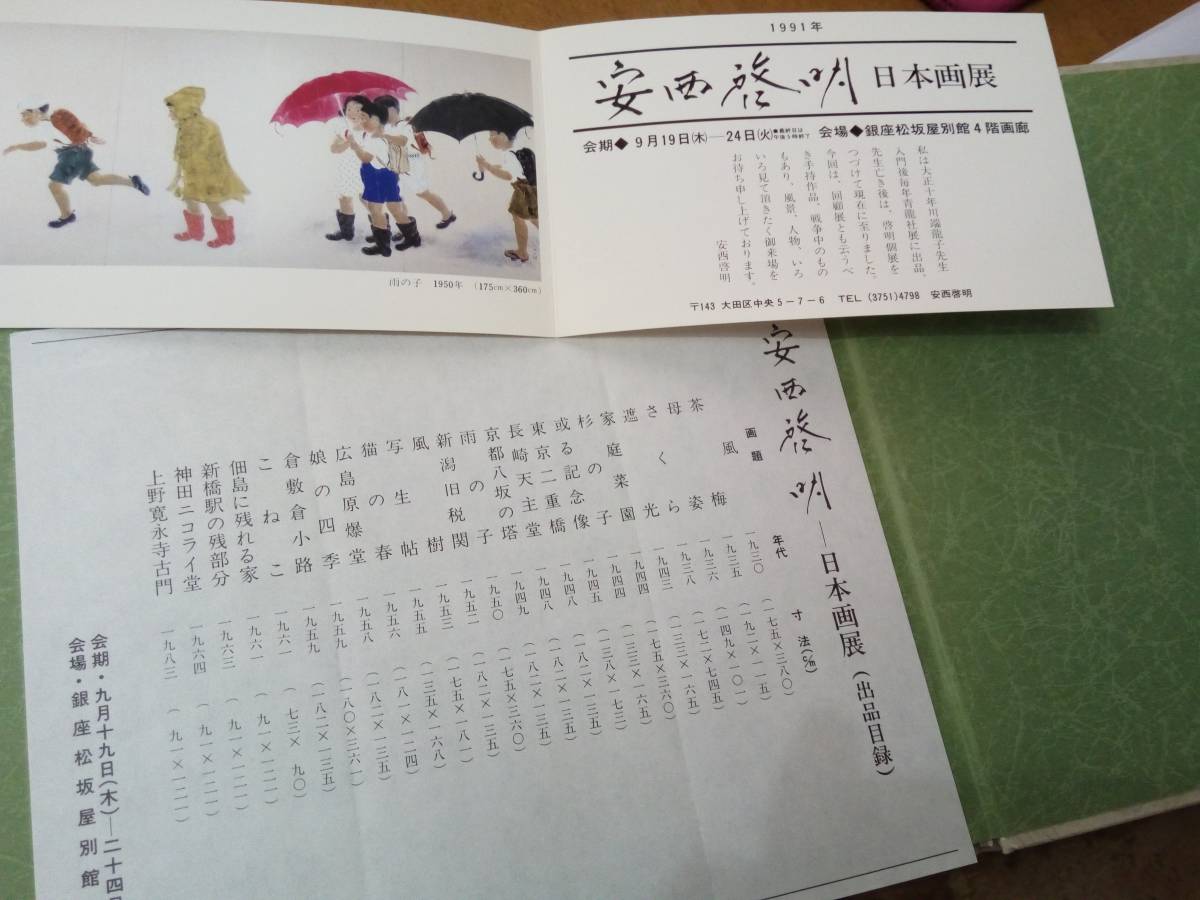 1991年
安西啓明 日本画展
会期◆9月19日(木)—24日(火)●最終日は午後5時終了 会場◆銀座松坂屋別館4階画廊
私は大正十年川端龍子先生
入門後毎年青龍社展に出品、
先生亡き後は、啓明個展を
つづけて現在に至りました。
今回は、回顧展とも云うべ
き手持作品、戦争中のもの
もあり、風景、人物、いろ
いろ見て頂きたく御来場を
お待ち申し上げております。
安西啓明
〒143 大田区中央5-7-6 TEL (3751)4798 安西啓明
雨の子 1950年 (175cm×360cm)
安西啓明—日本画展(出品目録)
画題 年代 寸法(㎝)
茶風梅
母姿
さくら
遮光
家庭菜園
杉の子
或る記念像
東京二重橋
長崎天主堂
京都八坂の塔
雨の子
新潟旧税関
風樹
写生帖
猫の春
広島原爆堂
娘の四季
倉敷倉小路
こねこ
佃島に残れる家
新橋駅の残部分
神田ニコライ堂
上野寛永寺古門
一九三〇
一九三五
一九三六
一九三八
一九四三
一九四四
一九四四
一九四五
一九四八
一九四八
一九四九
一九五〇
一九五二
一九五三
一九五五
一九五六
一九五八
一九五九
一九五九
一九六一
一九六一
一九六三
一九六四
一九八三
(一七五×三八〇)
(一九二×一一五)
(一四九×一〇一)
(一七二×七四五)
(一三三×一六五)
(一七五×三六〇)
(二三三×一六五)
(一三八×一七三)
(一八二×一三五)
(一八二×一三五)
(一八二×一三五)
(一七五×三六〇)
(一八二×一三五)
(一七五×一八一)
(一三五×一六八)
(一八一×一二四)
(一八二×一三五)
(一八〇×三六一)
(一八二×一三五)
(七三×九〇)
(九一×一二一)
(九一×一二一)
(九一×一二一)
(九一×一二一)
会期・九月十九日(木)—二十四日
会場・銀座松坂屋別館